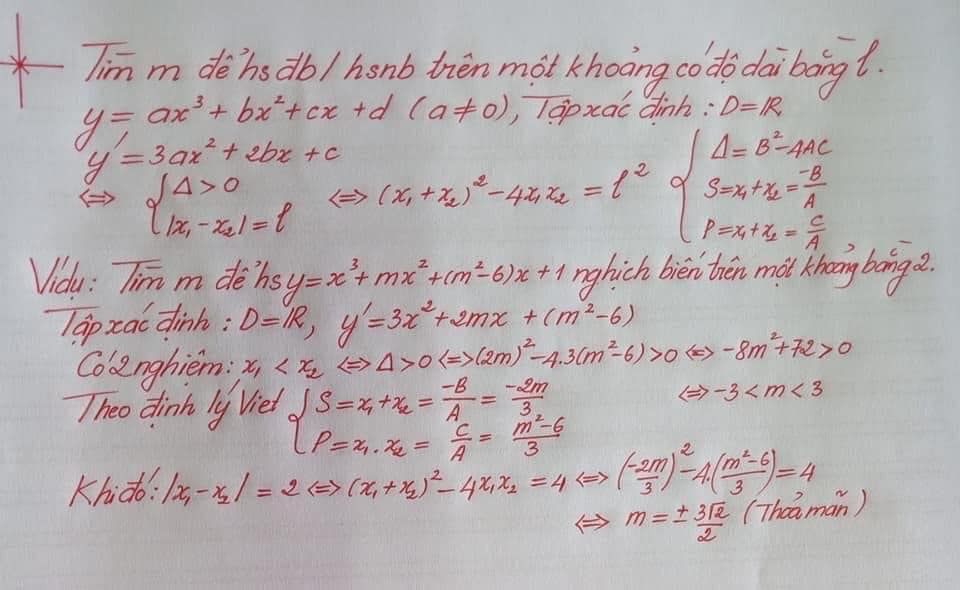 Tìm m để hs đb / hsnb trên một khoảng có độ dài bằng l.
y = ax³ + bx² + cx + d (a ≠ 0), Tập xác định : D = ℝ
y' = 3ax² + 2bx + c
⇔ { Δ > 0 ; |x₁ - x₂| = l ⇔ (x₁ + x₂)² - 4x₁x₂ = l² { Δ = B² - 4AC ; S = x₁ + x₂ = -B/A ; P = x₁ + x₂ = C/A
Ví dụ : Tìm m để hs y = x³ + mx² + (m² - 6)x + 1 nghịch biến trên một khoảng bằng 2.
Tập xác định : D = ℝ, y' = 3x² + 2mx + (m² - 6)
Có 2 nghiệm : x₁ < x₂ ⇔ Δ > 0 ⇔ (2m)² - 4.3(m² - 6) > 0 ⇔ -8m² + 72 > 0
⇔ -3 < m < 3
Theo định lý Viet { S = x₁ + x₂ = -B/A = -2m/3
P = x₁ . x₂ = C/A = (m² - 6)/3
Khi đó : |x₁ - x₂| = 2 ⇔ (x₁ + x₂)² - 4x₁x₂ = 4 ⇔ (-2m/3)² - 4.((m² - 6)/3) = 4
⇔ m = ± 3√2/2 (Thoả mãn)